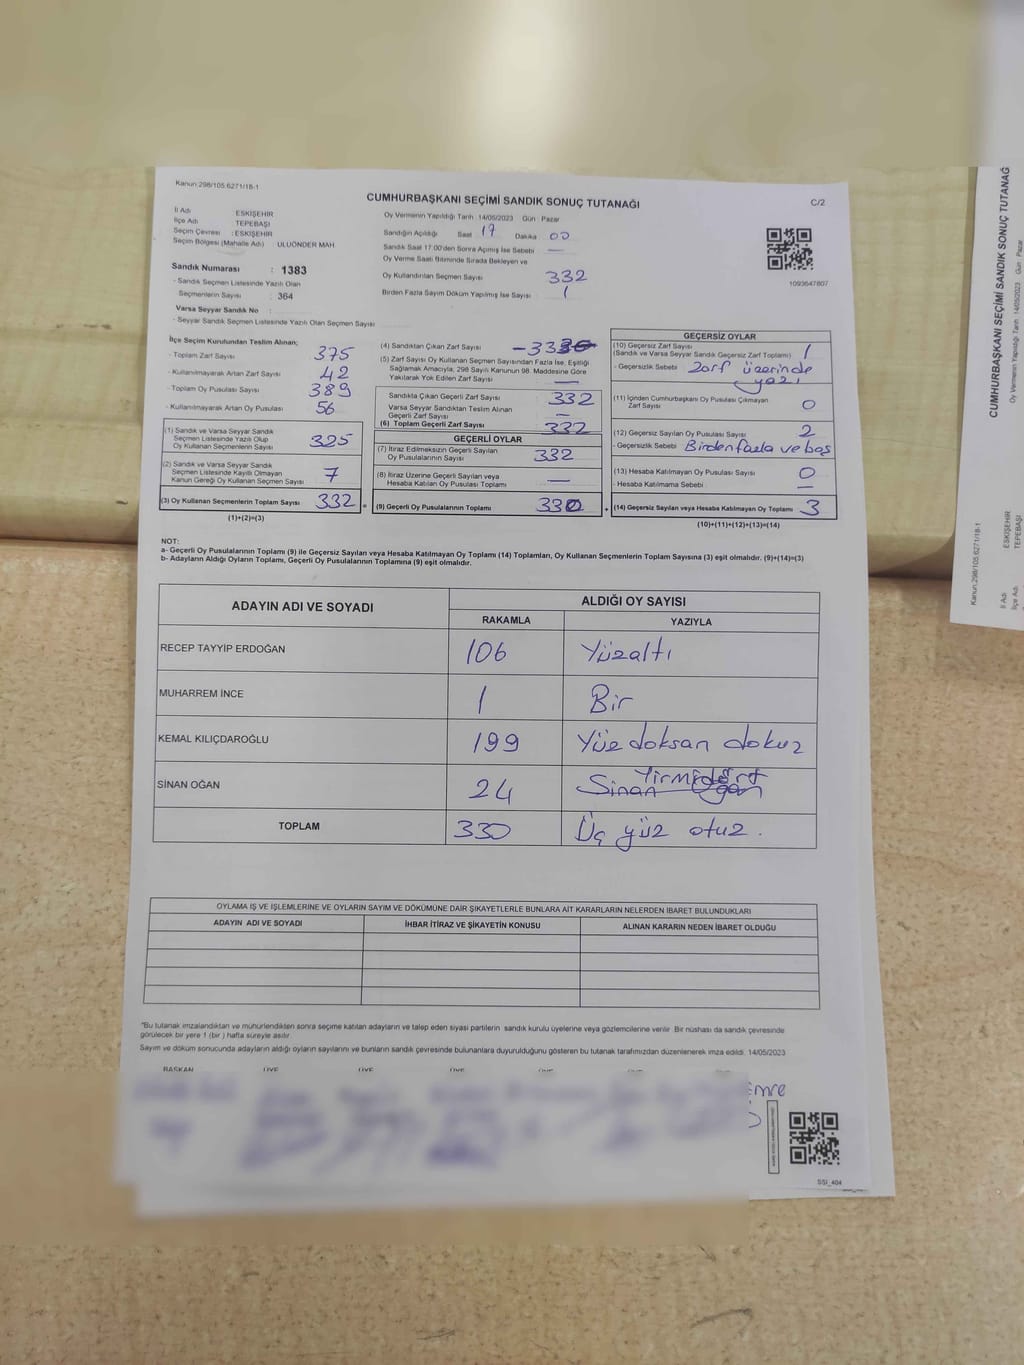 Kanun:298/105.6271/18-1
CUMHURBAŞKANI SEÇİMİ SANDIK SONUÇ TUTANAĞI
C/2
İl Adı ESKİŞEHİR
İlçe Adı : TEPEBAŞI
Seçim Çevresi : ESKİŞEHİR
Seçim Bölgesi (Mahalle Adı) : ULUÖNDER MAH.
Sandık Numarası : 1383
- Sandık Seçmen Listesinde Yazılı Olan
Seçmenlerin Sayısı : 364
Varsa Seyyar Sandık No :
- Seyyar Sandık Seçmen Listesinde Yazılı Olan Seçmen Sayısı
Oy Vermenin Yapıldığı Tarih 14/05/2023 Gün : Pazar
Sandığın Açıldığı Saat 17 Dakika 00
Sandık Saat 17:00'den Sonra Açılmış İse Sebebi —
Oy Verme Saati Bitiminde Sırada Bekleyen ve
Oy Kullandırılan Seçmen Sayısı 332
Birden Fazla Sayım Döküm Yapılmış İse Sayısı 1
1093647807
İlçe Seçim Kurulundan Teslim Alınan;
- Toplam Zarf Sayısı 375
- Kullanılmayarak Artan Zarf Sayısı 42
- Toplam Oy Pusulası Sayısı 389
- Kullanılmayarak Artan Oy Pusulası 56
(1) Sandık ve Varsa Seyyar Sandık
Seçmen Listesinde Yazılı Olup
Oy Kullanan Seçmenlerin Sayısı 325
(2) Sandık ve Varsa Seyyar Sandık
Seçmen Listesinde Kayıtlı Olmayan
Kanun Gereği Oy Kullanan Seçmen Sayısı 7
(3) Oy Kullanan Seçmenlerin Toplam Sayısı 332
(1)+(2)=(3)
(4) Sandıktan Çıkan Zarf Sayısı
(5) Zarf Sayısı Oy Kullanan Seçmen Sayısından Fazla İse, Eşitliği
Sağlamak Amacıyla, 298 Sayılı Kanunun 98. Maddesine Göre
Yakılarak Yok Edilen Zarf Sayısı —
Sandıkta Çıkan Geçerli Zarf Sayısı 332
Varsa Seyyar Sandıktan Teslim Alınan
Geçerli Zarf Sayısı —
(6) Toplam Geçerli Zarf Sayısı 332
GEÇERLİ OYLAR
(7) İtiraz Edilmeksizin Geçerli Sayılan
Oy Pusulalarının Sayısı 332
(8) İtiraz Üzerine Geçerli Sayılan veya
Hesaba Katılan Oy Pusulası Toplamı —
(9) Geçerli Oy Pusulalarının Toplamı 330
GEÇERSİZ OYLAR
(10) Geçersiz Zarf Sayısı
(Sandık ve Varsa Seyyar Sandık Geçersiz Zarf Toplamı) 1
- Geçersizlik Sebebi Zarf üzerinde
yazı
(11) İçinden Cumhurbaşkanı Oy Pusulası Çıkmayan
Zarf Sayısı 0
(12) Geçersiz Sayılan Oy Pusulası Sayısı 2
- Geçersizlik Sebebi Birden fazla ve boş
(13) Hesaba Katılmayan Oy Pusulası Sayısı 0
- Hesaba Katılmama Sebebi —
(14) Geçersiz Sayılan veya Hesaba Katılmayan Oy Toplamı 3
(10)+(11)+(12)+(13)=(14)
NOT:
a- Geçerli Oy Pusulalarının Toplamı (9) ile Geçersiz Sayılan veya Hesaba Katılmayan Oy Toplamı (14) Toplamları, Oy Kullanan Seçmenlerin Toplam Sayısına (3) eşit olmalıdır. (9)+(14)=(3)
b- Adayların Aldığı Oyların Toplamı, Geçerli Oy Pusulalarının Toplamına (9) eşit olmalıdır.
ADAYIN ADI VE SOYADI ALDIĞI OY SAYISI
RAKAMLA YAZIYLA
RECEP TAYYİP ERDOĞAN 106 Yüzaltı
MUHARREM İNCE 1 Bir
KEMAL KILIÇDAROĞLU 199 Yüz doksan dokuz
SİNAN OĞAN 24 Sinan Oğan Yirmidört
TOPLAM 330 Üç yüz otuz.
OYLAMA İŞ VE İŞLEMLERİNE VE OYLARIN SAYIM VE DÖKÜMÜNE DAİR ŞİKAYETLERLE BUNLARA AİT KARARLARIN NELERDEN İBARET BULUNDUKLARI
ADAYIN ADI VE SOYADI İHBAR İTİRAZ VE ŞİKAYETİN KONUSU ALINAN KARARIN NEDEN İBARET OLDUĞU
"Bu tutanak imzalandıktan ve mühürlendikten sonra seçime katılan adayların ve talep eden siyasi partilerin sandık kurulu üyelerine veya gözlemcilerine verilir. Bir nüshası da sandık çevresinde
görülecek bir yere 1 (bir ) hafta süreyle asılır.
Sayım ve döküm sonucunda adayların aldığı oyların sayılarını ve bunların sandık çevresinde bulunanlara duyurulduğunu gösteren bu tutanak tarafımızdan düzenlenerek imza edildi. 14/05/2023
BAŞKAN ÜYE ÜYE ÜYE ÜYE ÜYE ÜYE
Emre
SSI_404
CUMHURBAŞKANI SEÇİMİ SANDIK SONUÇ TUTANAĞ
Oy Vermenin Yapıldığı Tarih 14/05/2023 Gün : Pazar
Kanun:298/105.6271/18-1
İl Adı ESKİŞEHİR
İlçe Adı TEPEBAŞI